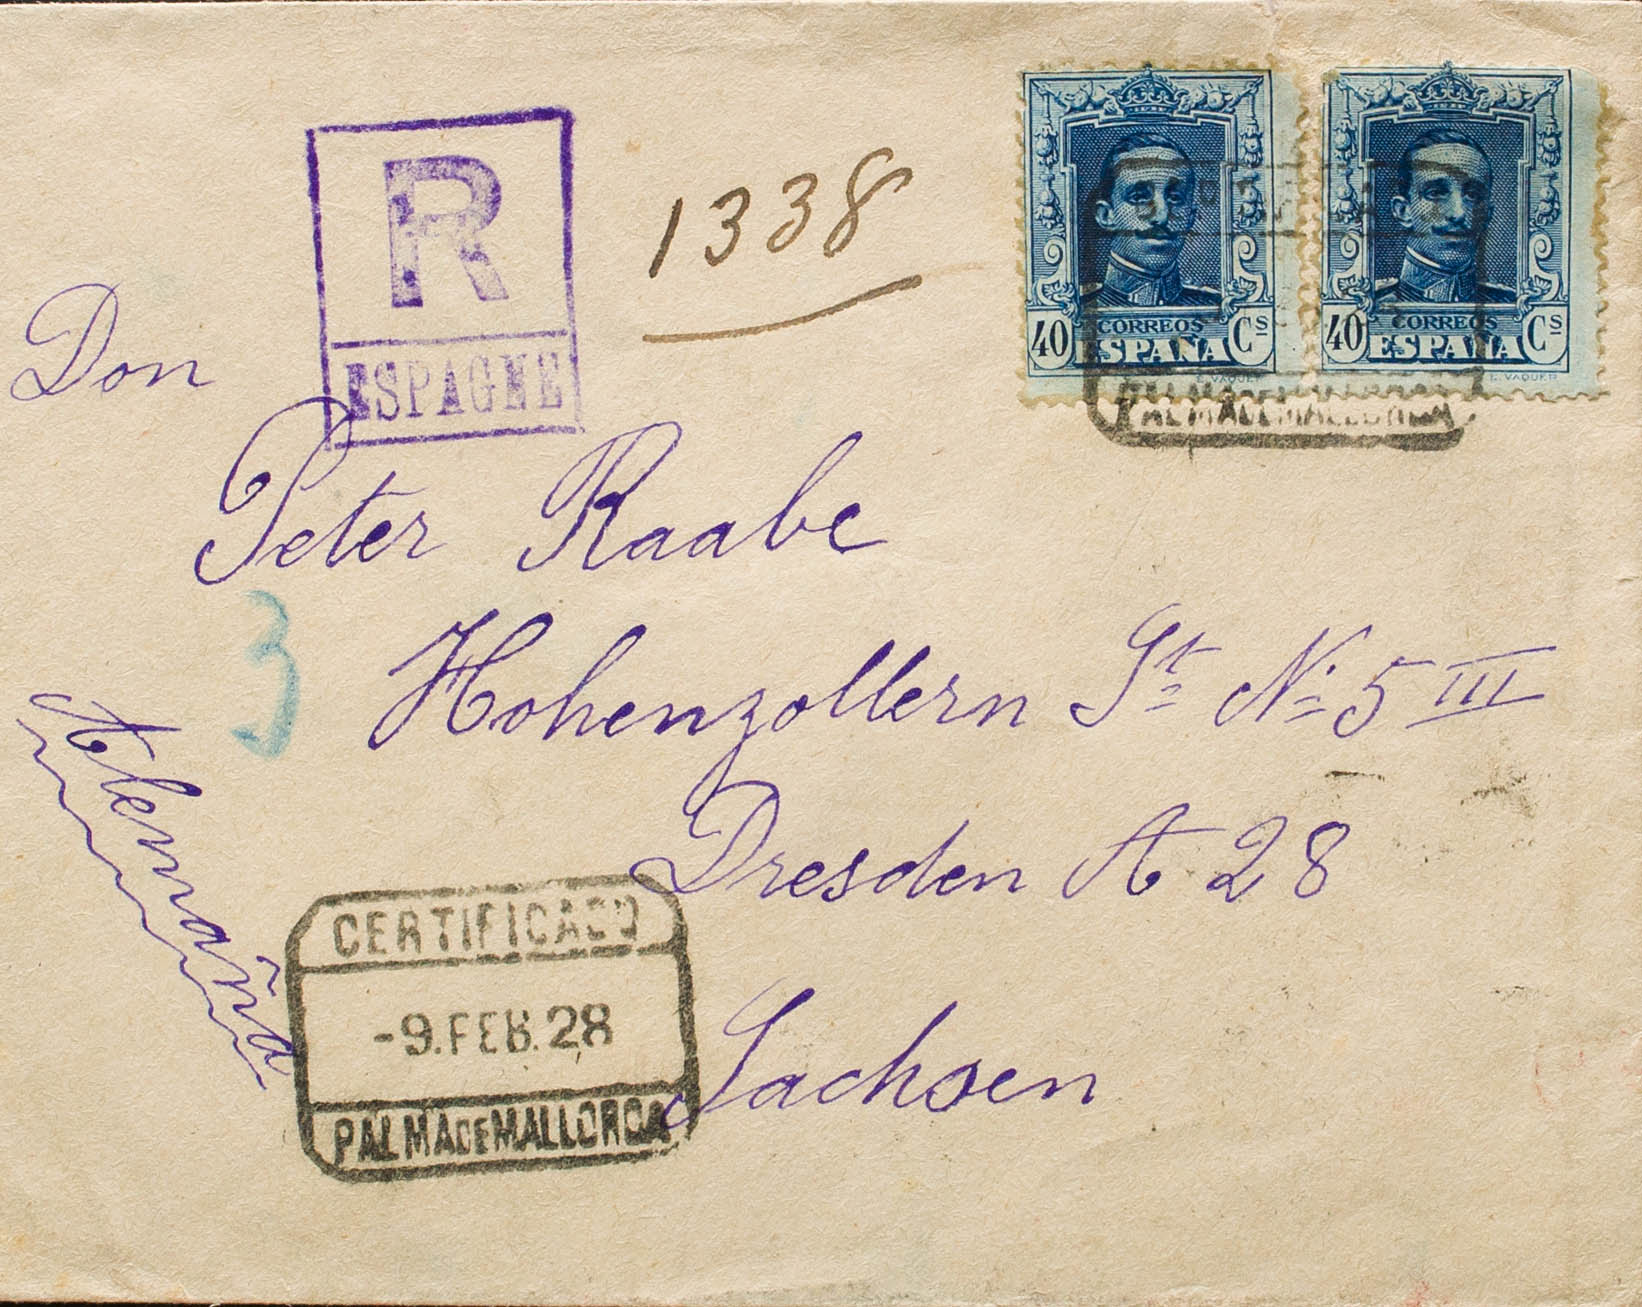 R
ESPAGNE
1338
40 CORREOS Cs
ESPAÑA
E. VAQUER
40 CORREOS Cs
ESPAÑA
E. VAQUER
PALMA DE MALLORCA
Don
Peter Raabe
3
Hohenzollern St No 5 III
Dresden A 28
Sachsen
Alemaña
CERTIFICADO
-9.FEB.28
PALMA DE MALLORCA